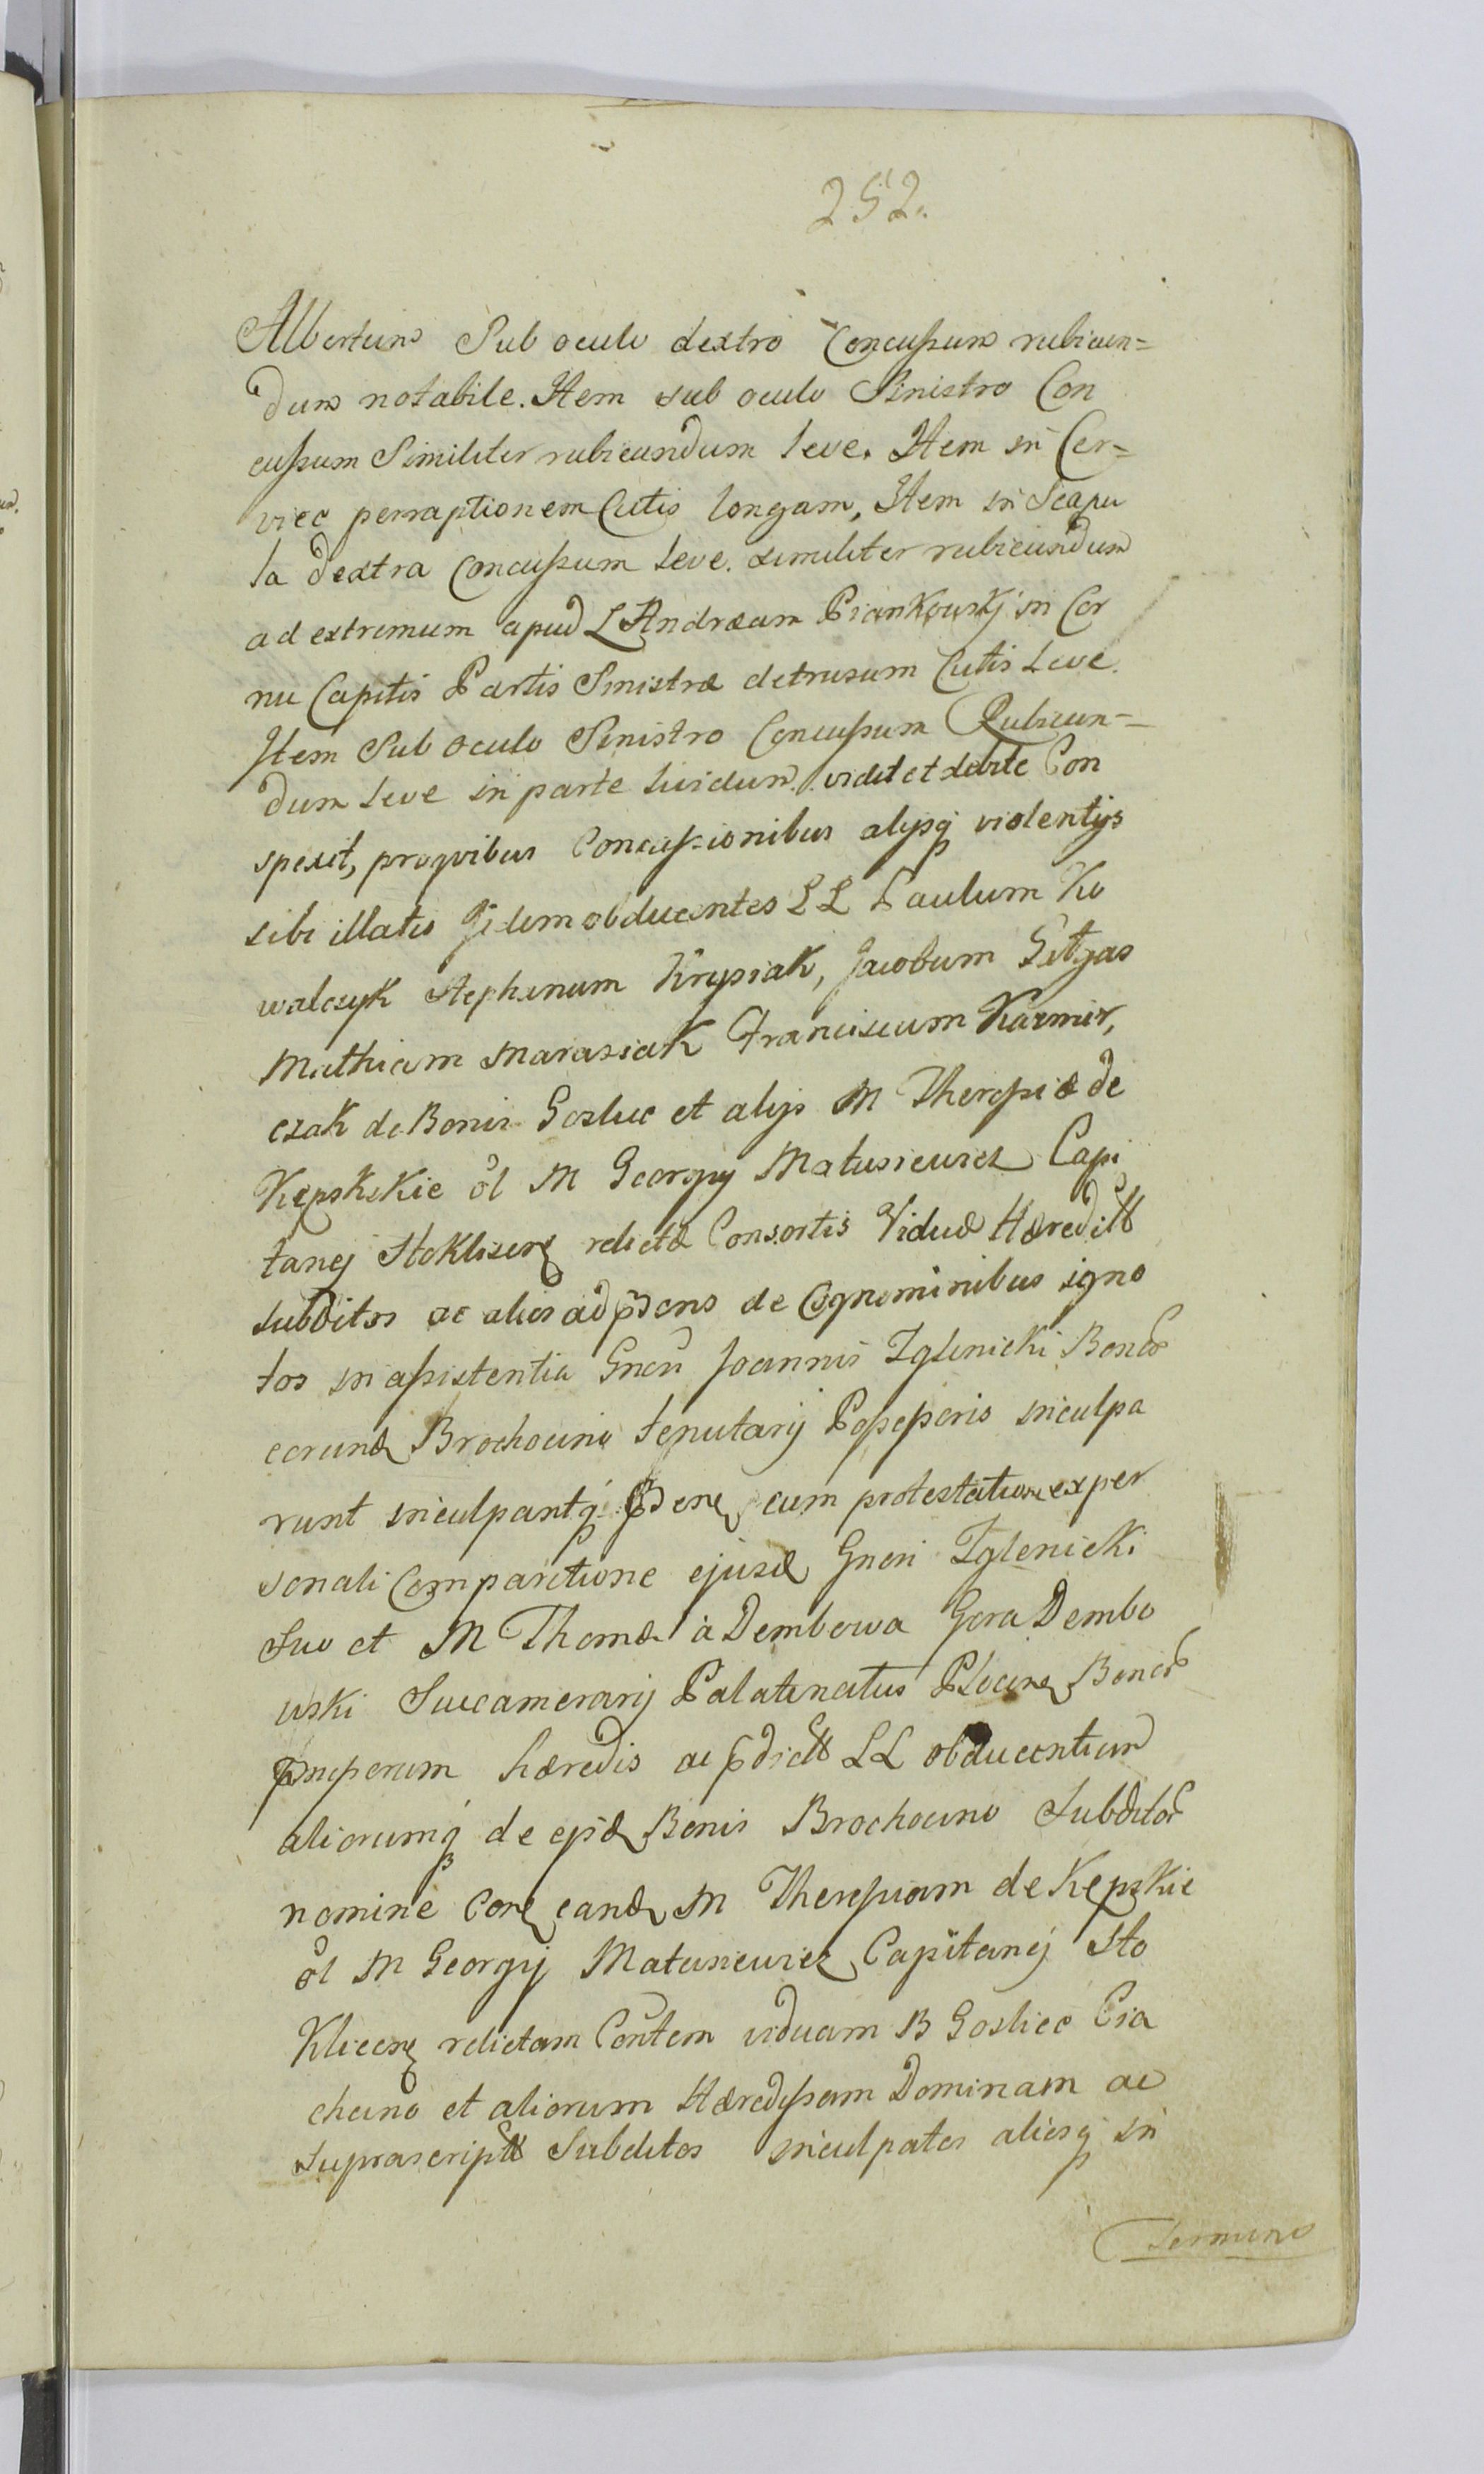 252.
Albertum Sub oculo dextro Concußum rubicun=
dum notabile. Item sub oculo Sinistro Con
cußum Similiter rubicundum leve. Item in Cer=
vice perraptionem Cutis longam, Item in Scapu
la dextra Concußum leve. similiter rubicundum
ad extremum apud L Andræam Piankowskj in Cor
nu Capitis Partis Sinistræ detrusum Cutis leve.
Item Sub oculo Sinistro Concußum Rubicun=
dum leve in parte lividum. vidit et debite Con
spexit, proqvibus Concußionibus alijsq violentijs
sibi illatis Jidem obducentes LL Paulum Ko
walczyk Stephanum Krysiak, Jacobum
Mathiam Marasiak Franciscum Karmir,
czak de Bonis Gosluc et alijs M Thereßiæ de
Kępskskie ol M Georgij Matusiewicz Capi
tanej Stokliscen relictæ Consortis Viduæ Hæredit
subditos ac alios ad psens de Cognominibus igno
tos in aßistentia Gnen Joannis Iglenicki Bonor
eorund Brochocino tenutarij Poßeßoris inculpa
runt inculpantq psen cum protestatione exper
sonali Comparitione ejusd Gneri Iglenicki
Suo et M Thomæ à Dembowa Gora Dembo
wski Succamerarij Palatinatus Plocen Bonor
hæredis ac pdict LL obducentium
aliorumq de ejsd Bonis Brochocino Subditor
nomine Con eand M Thereßiam de Kępskie
ol M Georgij Matusiewicz Capitanej Sto
Kliccen relictam Contem viduam B Goslice Cia
chcino et aliorum Hæredißam Dominam ac
suprascript Subditos inculpatos aliosq in
Termino